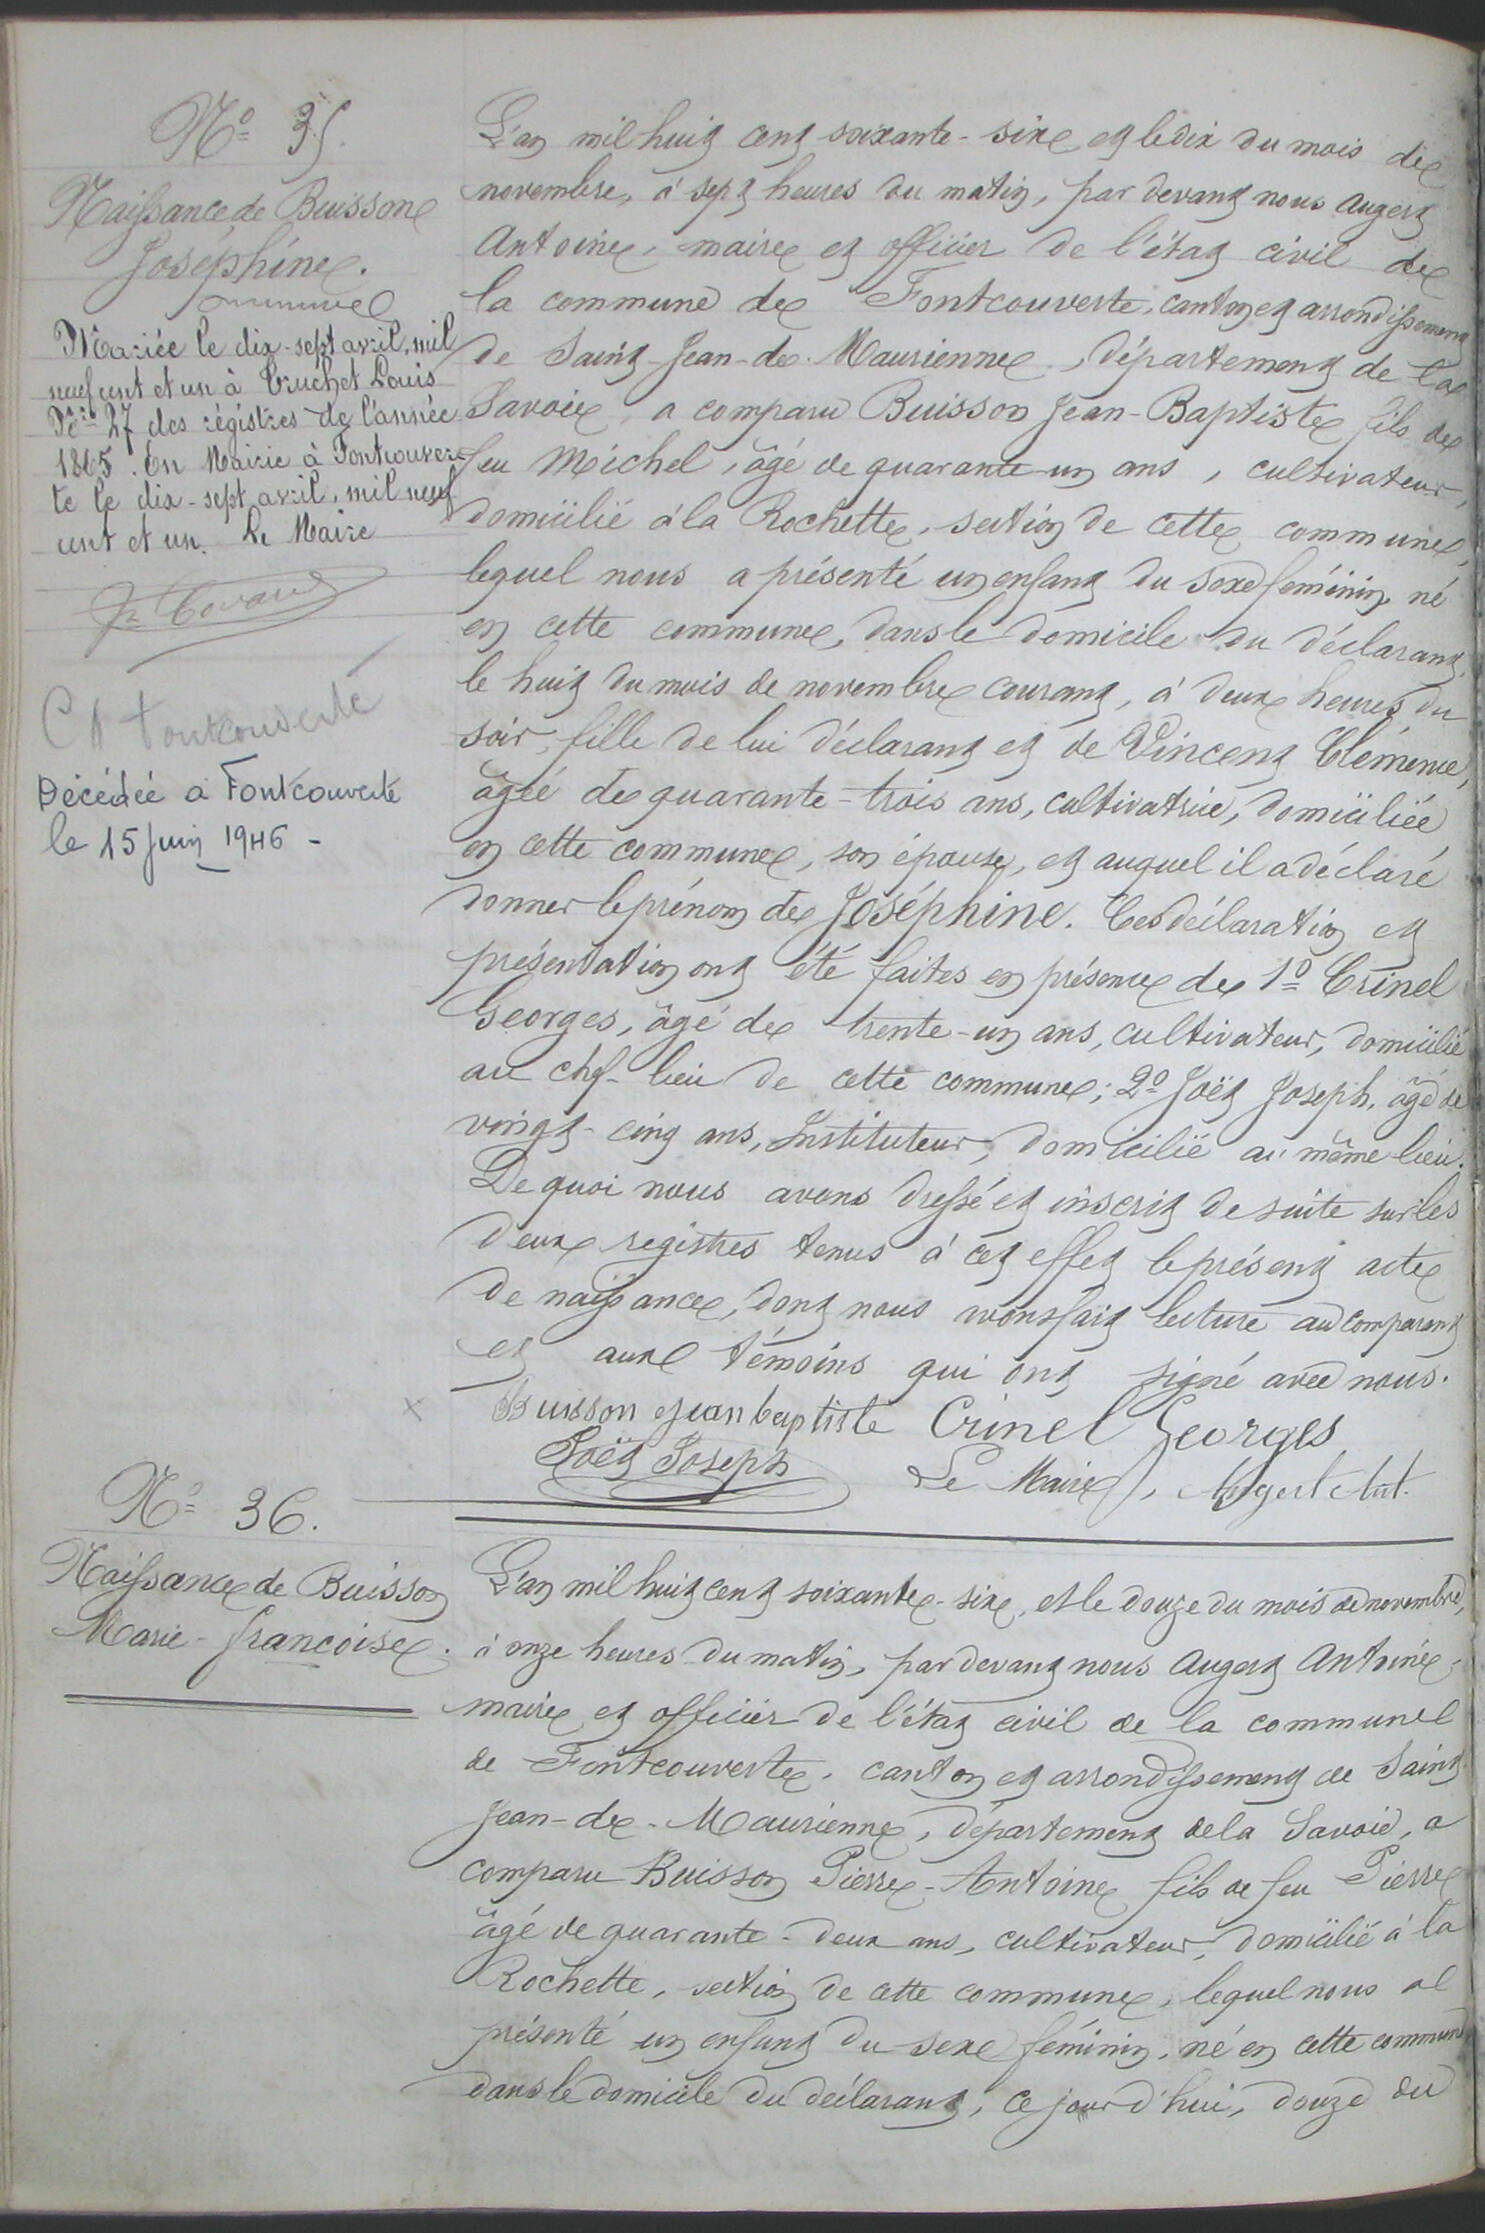 N° 35.
Naissance de Buisson
Joséphine.
Mariée le dix-sept avril, mil
neuf cent et un à Truchet Louis
N° 27 des régistres de l'année
1865. En Mairie à Fontcouver-
te le dix-sept avril, mil neuf
cent et un. Le Maire
Fontcouverte
Décédée à Fontcouverte
le 15 Juin 1946 -
L'an mil huit cent soixante-six et le dix du mois de
novembre, à sept heures du matin, par devant nous Augert
Antoine, maire et officier de l'état civil de
la commune de Fontcouverte, canton et arrondissement
de Saint-Jean-de-Maurienne, département de la
Savoie, a comparu Buisson Jean-Baptiste fils de
feu Michel, âgé de quarante-un ans, cultivateur,
domicilié à la Rochette, section de cette commune,
lequel nous a présenté un enfant du sexe féminin, né
en cette commune, dans le domicile du déclarant
le huit du mois de novembre courant, à deux heures du
soir, fille de lui déclarant et de Vincent Clémence,
âgée de quarante-trois ans, cultivatrice, domiciliée
en cette commune, son épouse, et auquel il a déclaré
donner le prénom de Joséphine. Ces déclaration et
présentation ont été faites en présence de 1° Crinel
Georges, âgé de trente-un ans, cultivateur, domicilié
au chef-lieu de cette commune; 2° Joët Joseph, âgé de
vingt-cinq ans, Instituteur, domicilié au même lieu.
De quoi nous avons dressé et inscrit de suite sur les
deux registres tenus à cet effet le présent acte
de naissance, dont nous avons fait lecture au comparant
et aux témoins qui ont signé avec nous.
Buisson jean baptiste Crinel Georges
Joët Joseph Le Maire, Augert Ant.
N° 36.
Naissance de Buisson
Marie-francoise.
L'an mil huit cent soixante-six, et le douze du mois de novembre,
à onze heures du matin, par devant nous Augert Antoine,
maire et officier de l'état civil de la commune
de Fontcouverte, canton et arrondissement de Saint
Jean-de-Maurienne, département de la Savoie, a
comparu Buisson Pierre-Antoine fils de feu Pierre
âgé de quarante-deux ans, cultivateur, domicilié à la
Rochette, section de cette commune, lequel nous a
présenté un enfant du sexe féminin, né en cette commune
dans le domicile du déclarant, ce jourd'hui, douze du